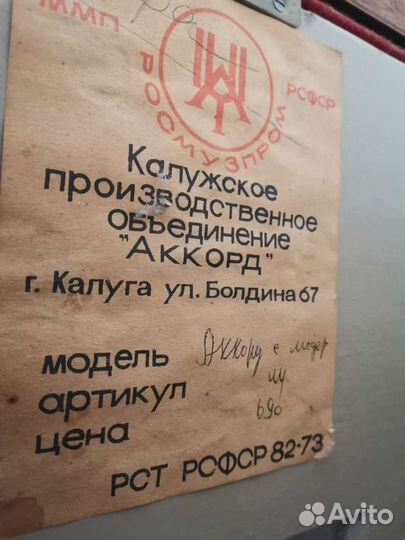 ММП РСФСР
РОСМУЗПРОМ
Калужское
производственное
объединение
"Аккорд"
г. Калуга ул. Болдина 67
модель Аккорд с
артикул
цена 690
РСТ РСФСР 82-73
Avito